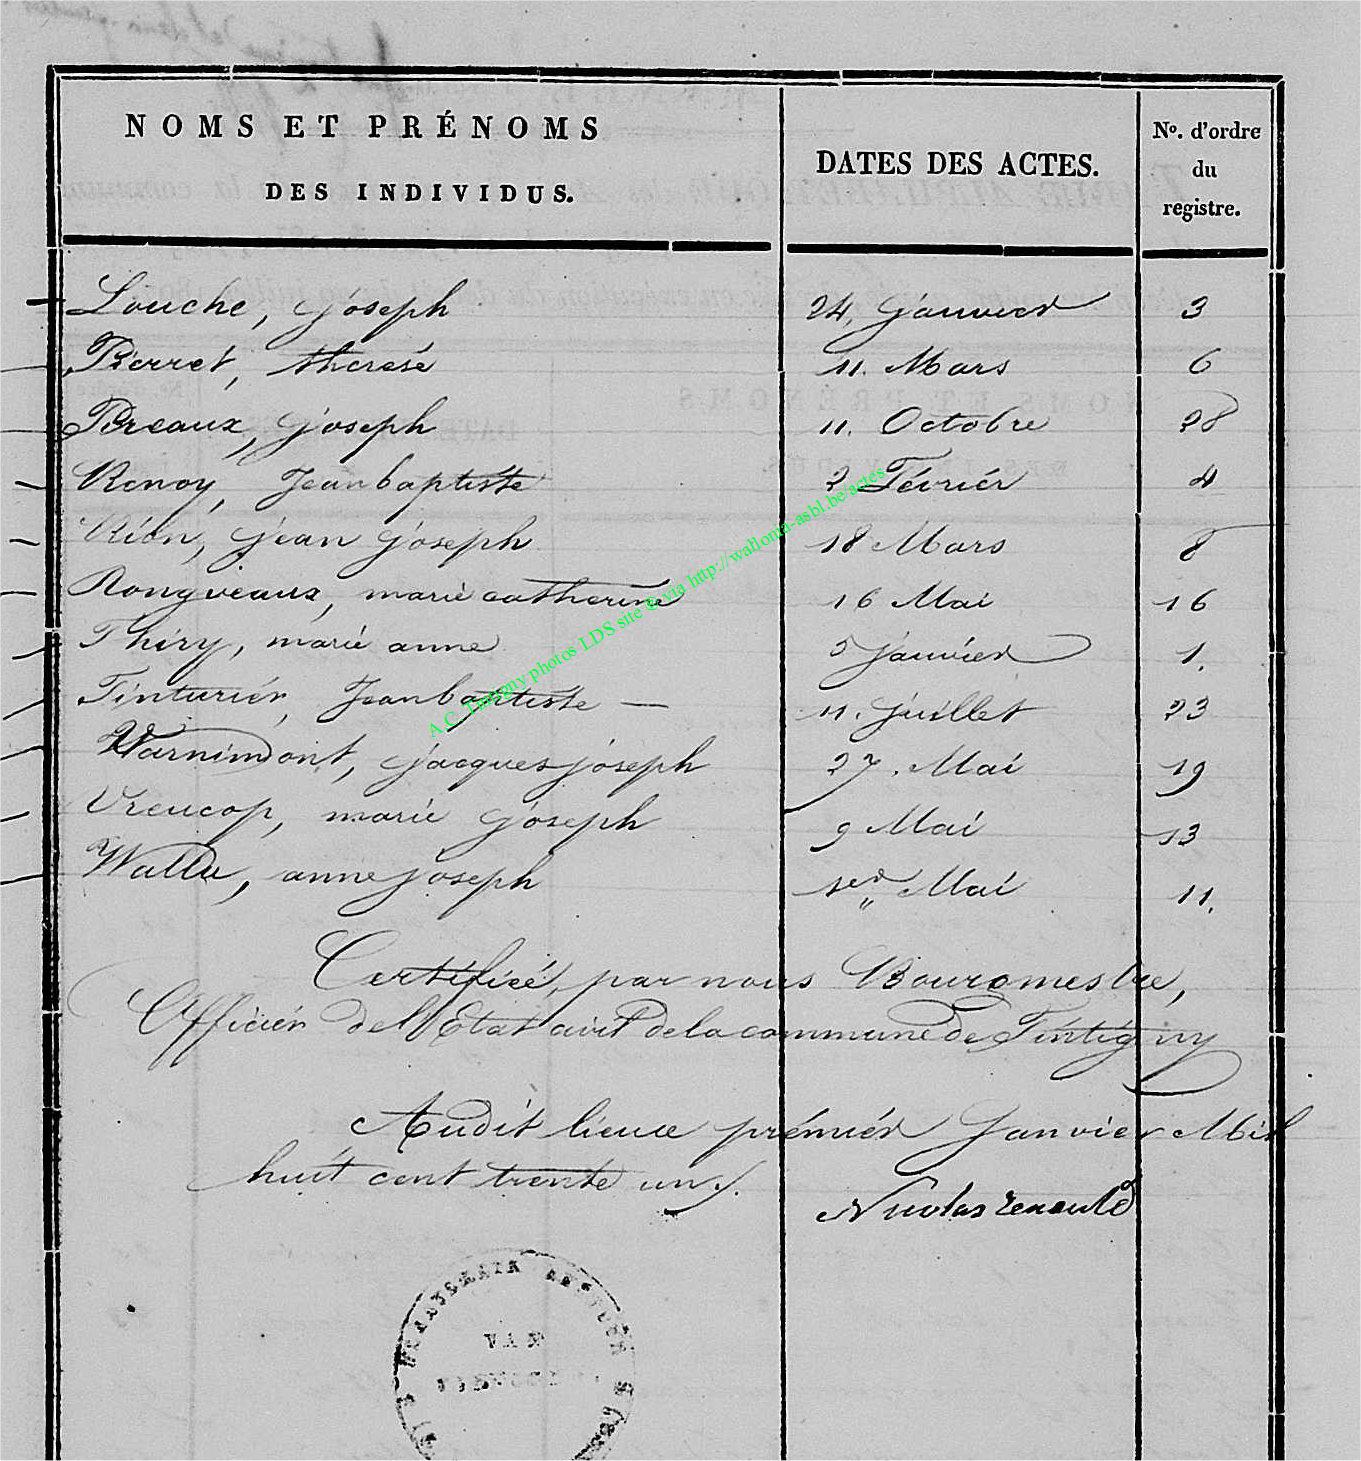 NOMS ET PRÉNOMS
DES INDIVIDUS.
DATES DES ACTES.
No. d'ordre
du
registre.
Louche, Joseph 24, Janvier 3
Pierret, therese 11. Mars 6
Preaux, Joseph 11. Octobre 28
Renoy, Jean baptiste 2 Février 4
Rion, Jean Joseph 18 Mars 8
Rongveaux, marie catherine 16 Mai 16
Thiry, marie anne 5 Janvier 1.
Tinturier, Jean baptiste — 11. Juillet 23
Warnimont, Jacques joseph 27. Mai 19
marie Joseph 9 Mai 13
anne joseph 1er Mai 11.
Certifié, par nous Bourgmestre,
Officier de l'Etat civil de la commune de Tintigny
Audit lieu le prémiér Janvier Mil
huit cent trente un ./.
Nicolas
VAN
A.C. Tintigny photos LDS site & via http://wallonia-asbl.be/actes